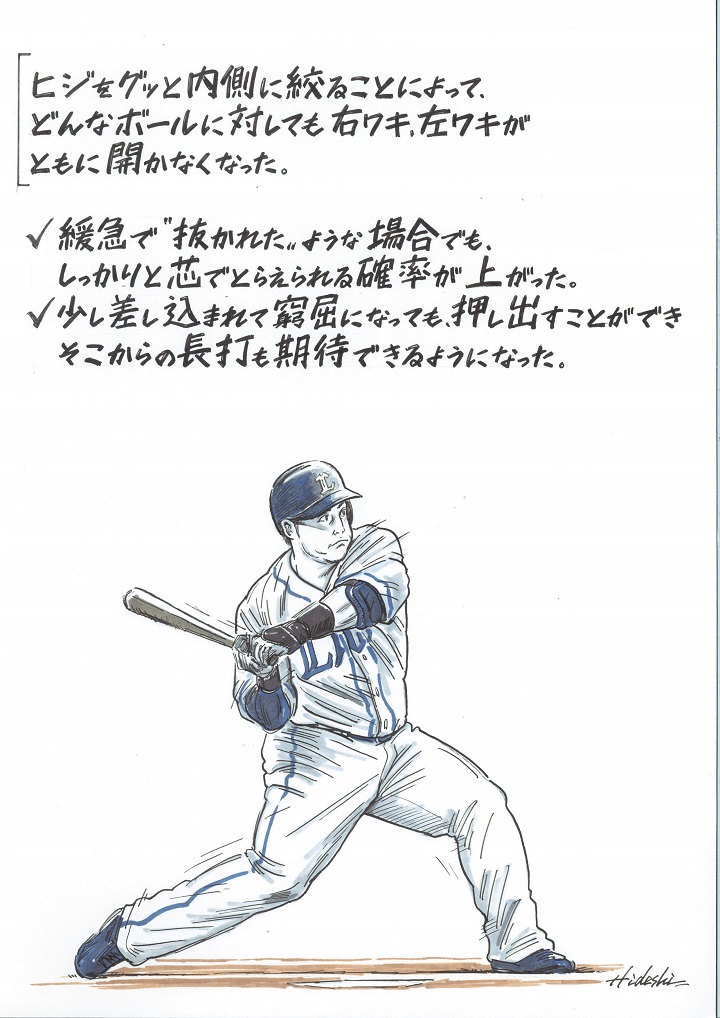 ヒジをグッと内側に絞ることによって、
どんなボールに対しても右ワキ、左ワキが
ともに開かなくなった。
✓緩急で〝抜かれた〟ような場合でも、
しっかりと芯でとらえられる確率が上がった。
✓少し差し込まれて窮屈になっても、押し出すことができ
そこからの長打も期待できるようになった。
L
LIO
Hideshi